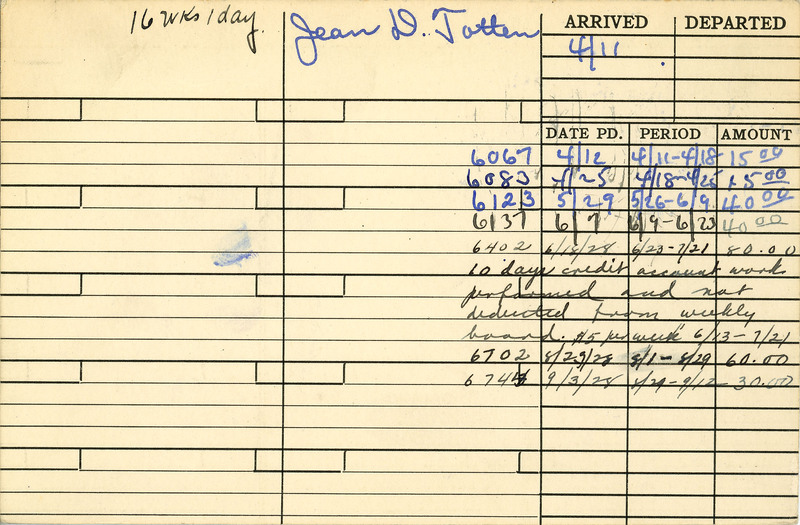 16 wks 1 day. Jean D. Totten ARRIVED DEPARTED
4/11
DATE PD. PERIOD AMOUNT
6067 4/12 4/11-4/18 15 00
6083 4/25 4/18-4/25 15 00
6123 5/29 5/26-6/9 40 00
6137 6/7 6/9-6/23 40 00
6402 6/18/28 6/23-7/21 80.00
10 days credit account works
performed and not
deducted from weekly
board. $5 per week 6/13-7/21
6702 8/29/28 8/1-8/29 60.00
6744 9/3/28 8/29-9/12 30.00